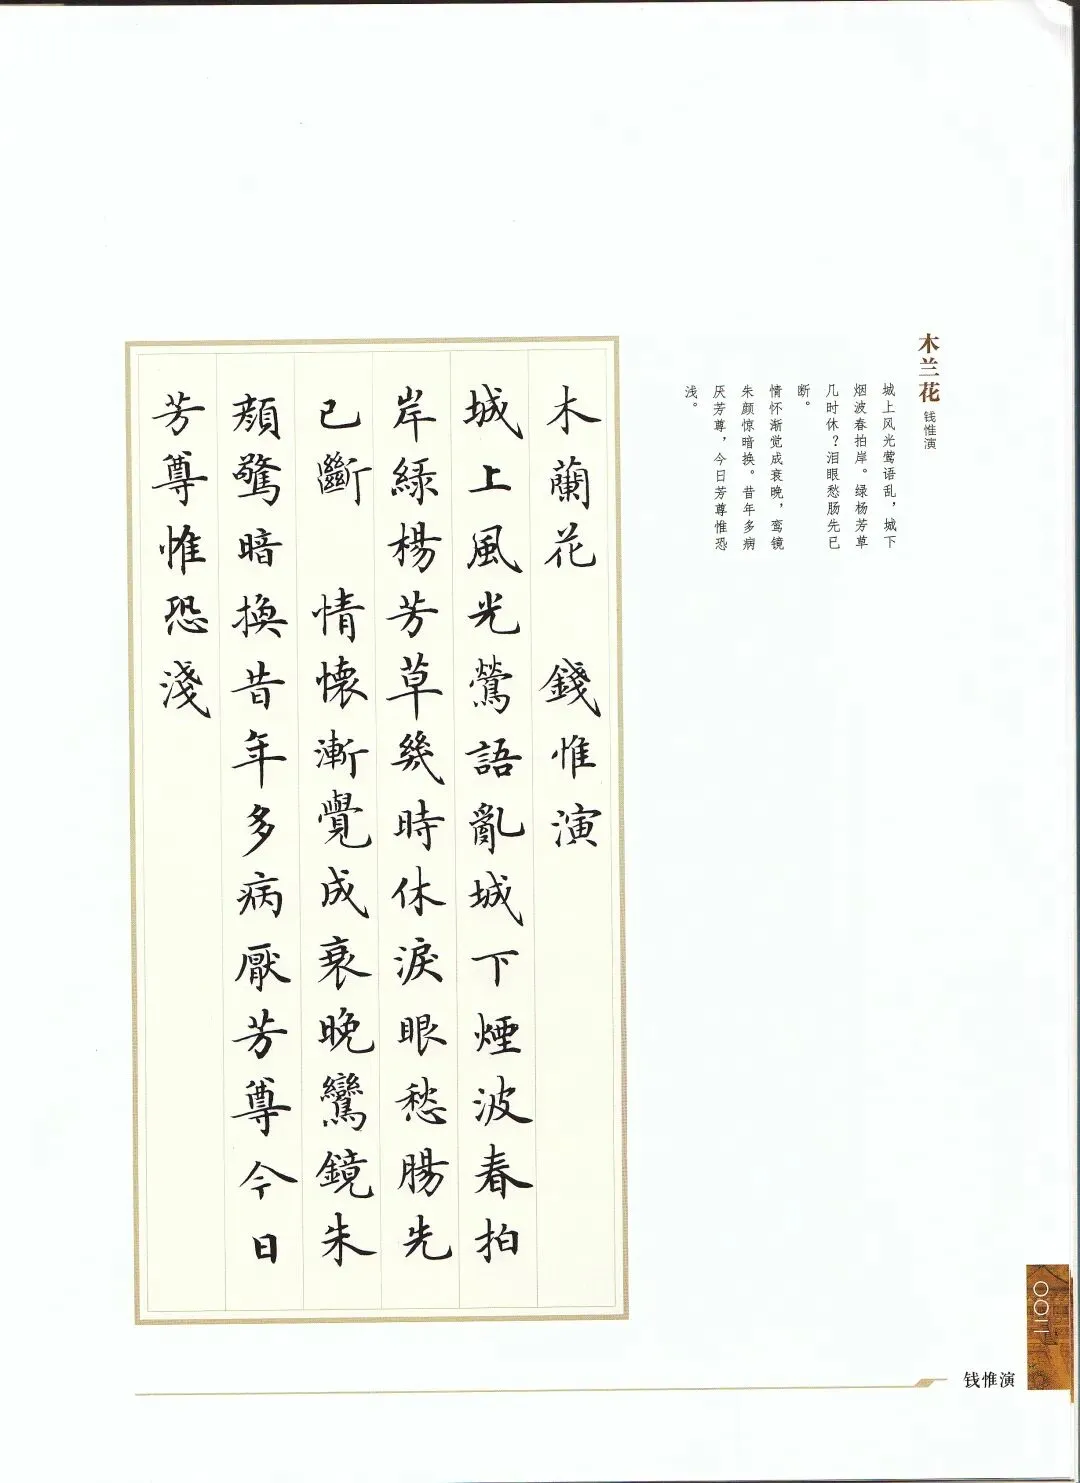 木兰花
钱惟演
城上风光莺语乱，城下
烟波春拍岸。绿杨芳草
几时休？泪眼愁肠先已
断。
情怀渐觉成衰晚，鸾镜
朱颜惊暗换。昔年多病
厌芳尊，今日芳尊惟恐
浅。
木蘭花 錢惟演
城上風光鶯語亂城下煙波春拍
岸綠楊芳草幾時休淚眼愁腸先
已斷 情懷漸覺成衰晚鸞鏡朱
顏驚暗換昔年多病厭芳尊今日
芳尊惟恐淺
001
钱惟演